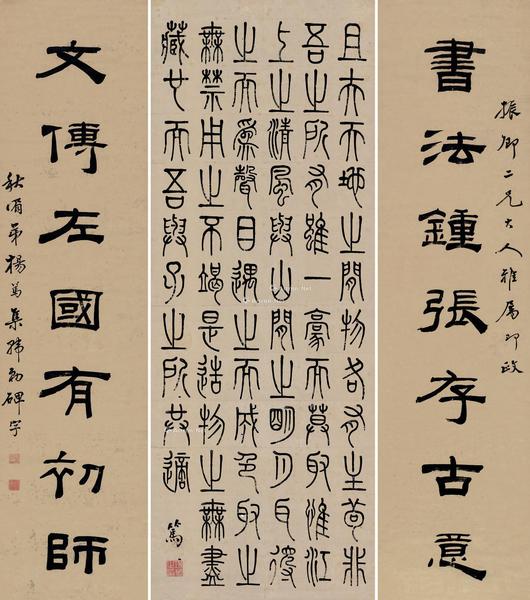 振卿二兄大人雅屬即政
書法鍾張存古意
且夫天地之間物各有主苟非
吾之所有雖一豪而莫取惟江
上之清風與山間之明月耳得
之而為聲目遇之而成色取之
無禁用之不竭是造物之無盡
藏也而吾與子之所共適
篤
文傳左國有初師
秋湄弟楊篤集韓勑碑字